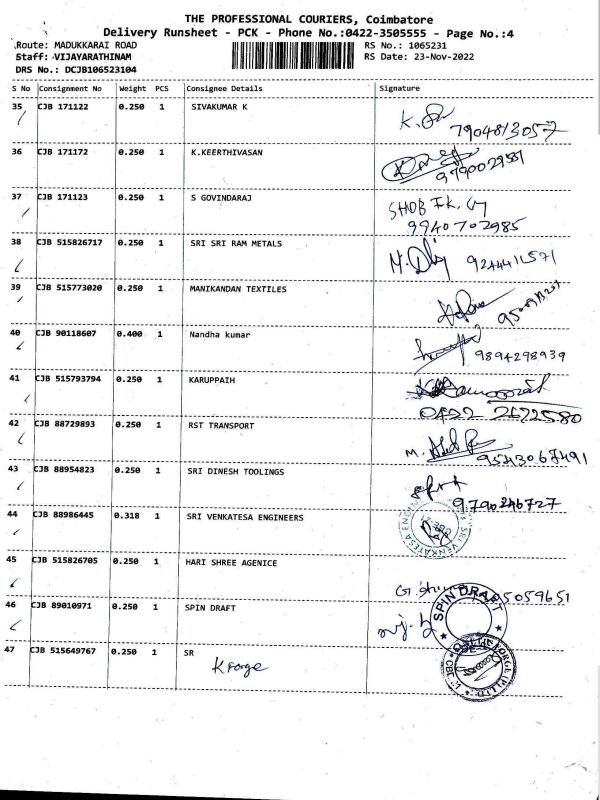 THE PROFESSIONAL COURIERS, Coimbatore
Delivery Runsheet - PCK - Phone No.:0422-3505555 - Page No.:4
Route: MADUKKARAI ROAD RS No.: 1065231
Staff: VIJAYARATHINAM RS Date: 23-Nov-2022
DRS No.: DCJB106523104
S No Consignment No Weight PCS Consignee Details Signature
35 CJB 171122 0.250 1 SIVAKUMAR K
7904813057
36 CJB 171172 0.250 1 K.KEERTHIVASAN
9790029581
37 CJB 171123 0.250 1 S GOVINDARAJ
9940702985
38 CJB 515826717 0.250 1 SRI SRI RAM METALS
9244411571
39 CJB 515773020 0.250 1 MANIKANDAN TEXTILES
40 CJB 90118607 0.400 1 Nandha kumar
9894298939
41 CJB 515793794 0.250 1 KARUPPAIH
0422 2672580
42 CJB 88729893 0.250 1 RST TRANSPORT
9543067491
43 CJB 88954823 0.250 1 SRI DINESH TOOLINGS
9790246727
44 CJB 88986445 0.318 1 SRI VENKATESA ENGINEERS
SRI VENKATESA
45 CJB 515826705 0.250 1 HARI SHREE AGENICE
5059651
46 CJB 89010971 0.250 1 SPIN DRAFT
SPIN DRAFT
47 CJB 515649767 0.250 1 SR
K Forge